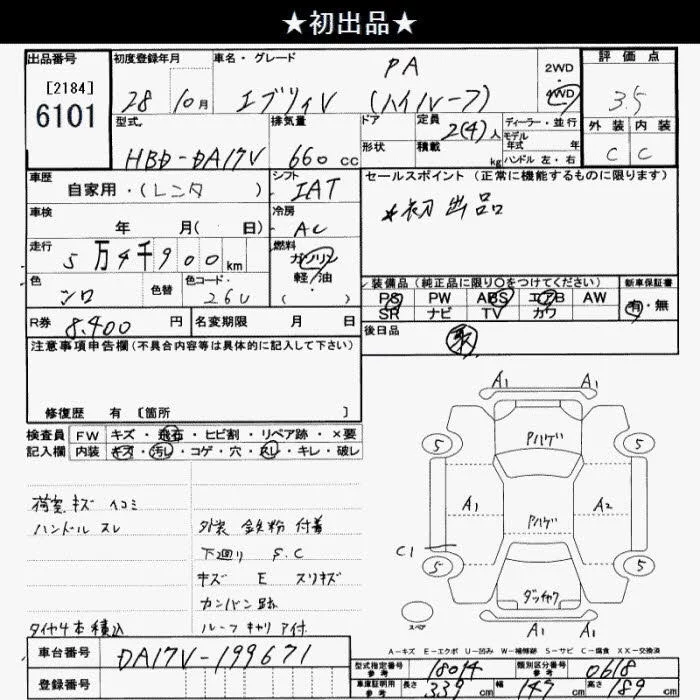 ★初出品★
出品番号
[2184]
6101
初度登録年月
28 10月
車名・グレード
PA
エブリイV (ハイルーフ)
2WD
・
4WD
評価点
3.5
外装 内装
C C
型式
HBD-DA17V
排気量
660 cc
ドア
形状
定員
2(4)人
積載
kg
ディーラー・並行
モデル
年式 年
ハンドル 左・右
車歴
自家用・(レンタ )
シフト
IAT
セールスポイント (正常に機能するものに限ります)
*初出品
車検
年 月( 日)
冷房
AC
走行
5万4千900km
燃料
ガソリン
軽油
( )
色
シロ
色替
色コード
26U
装備品 (純正品に限り○をつけてください)
PS PW ABS エアB AW
SR ナビ TV カワ
新車保証書
有・無
R券
8,400 円
名変期限 月 日
後日品
取
注意事項申告欄 (不具合内容等は具体的に記入して下さい)
修復歴 有 [箇所 ]
検査員
記入欄
FW キズ・飛石・ヒビ割・リペア跡・×要
内装 キズ・汚レ・コゲ・穴・スレ・キレ・破レ
荷室 キズ ヘコミ
ハンドル スレ
タイヤ4本積込
外装 鉄粉 付着
下廻り S.C
キズ E スリキズ
カンバン跡
ルーフキャリア付
A1 A1
5 5
Pハゲ
A1 A2
Pハゲ
C1
5 5
ダッチャク
スペア
A1 A1
A-キズ E-エクボ U-凹み W-補修跡 S-サビ C-腐食 XX-交換済
車台番号
DA17V-199671
登録番号
型式指定番号
参考
18014
類別区分番号
参考
0618
車庫証明用
参考
長さ 339 cm 幅 147 cm 高さ 189 cm